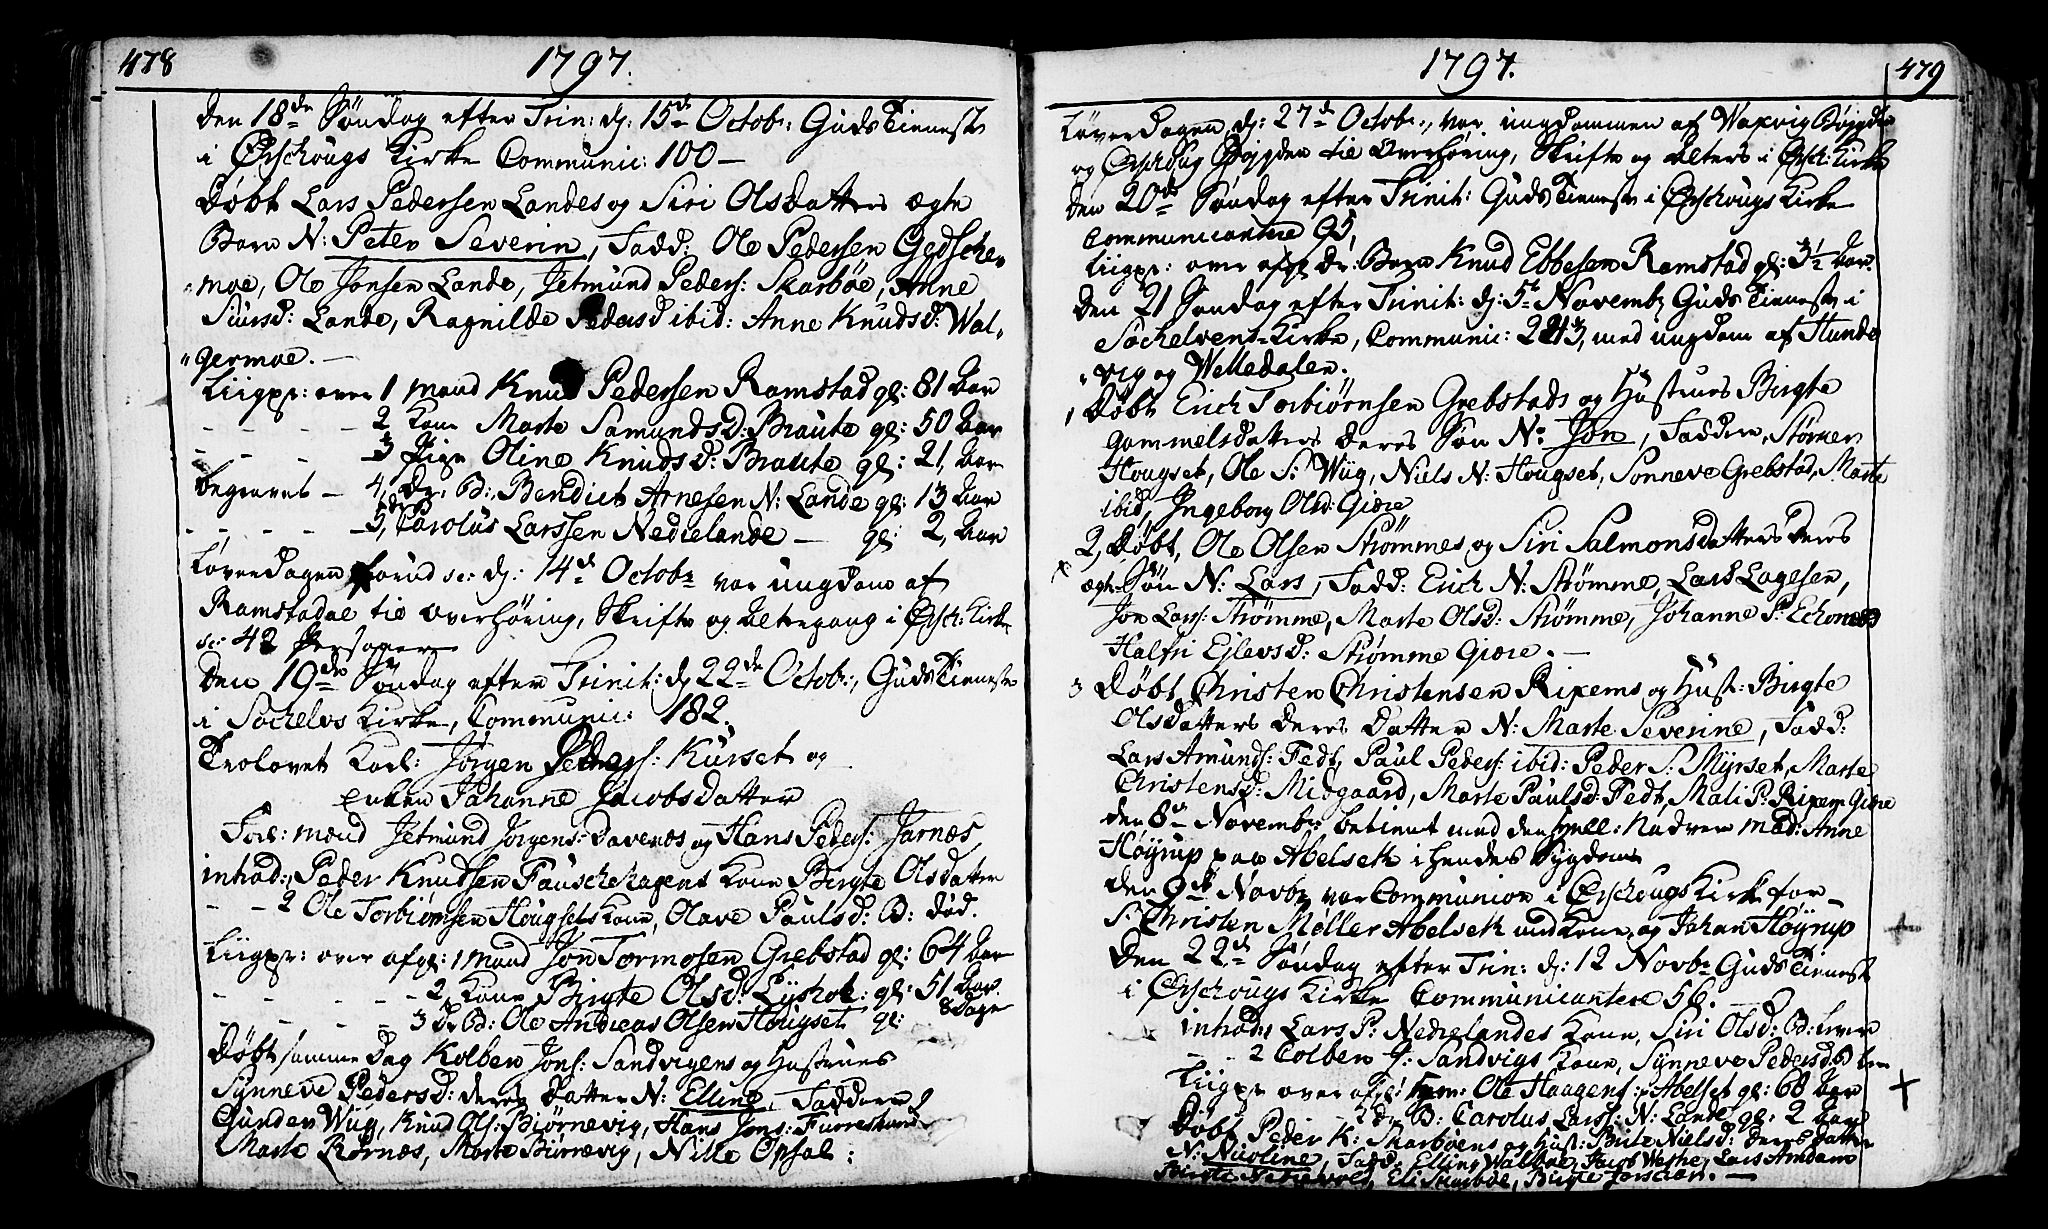 478
1797.
Den 18de Søndag efter Trin: dj: 15de Octob: GudsTieneste
i Ørschougs Kirke Communic: 100 —
Døbt Lars Pedersen Landes og Siri Olsdatters ægte
Barn N: Peter Severin, Fadd: Ole Pedersen Gjedsche-
moe, Ole Jonsen Lande, Jetmund Peders: Skarbøe, Anne
Siursd: Lande, Ragnilde Pedersd ibid: Anne Knudsd: Wal-
germoe. —
Liigpr: over 1 Mand Knud Pedersen Ramstad gl: 81 Aar
- - - - 2 Kone Marte Samundsd: Braute gl: 50 Aar
- - - - 3 Pige Oline Knudsd: Braute gl: 21, Aar
Begravet — 4, Dr. B: Bendict Arnesen N: Lande gl: 13 Aar
- - - - - 5, Carolus Larssen Nedrelande — gl: 2, Aar
Løverdagen forud sc: dj: 14de Octobr var ungdom af
Ramstadal til overhøring, Skrifte og Altergang i Ørsch: Kirke
sc: 42 Personer
Den 19de Søndag efter Trinit: dj 22de Octobr:, GudsTieneste
i Søchelvs Kirke, Communic: 182.
Trolovet Karl: Jørgen Peders: Kurset og
Enken Johanne Jacobsdatter
Forl: mænd Jetmund Jørgens: Davenes og Hans Peders: Jarnæs
inthrod:, Peder Knudsen Fauschehagens Kone Birgte Olsdatter
- - 2 Ole Torbiørnsen Hougsets Kone, Olave Paulsd: B: død.
Liigpr: over afgl: 1 Mand Jon Tormosen Grebstad gl: 64 Aar
- - - - - 2, Kone Birgte Olsd: Lyshol: gl: 51 Aar.
- - - - 3 Dr Bd: Ole Andreas Olsen Hougset gl: 8 Dage
Døbt samme Dag Kolben Jons: Sandvigens og Hustrues
Synneve Pedersd: deres Datter N: Elline, Faddere
Gunder Wiig, Knud Ols: Biørnevig, Hans Jons: Furrestrand
Marte Rørnæs, Marte Biørnevig, Nille Opsal:
479
1797.
Løverdagen dj: 27de Octobr:, var ungdommen af Waxvig Bøygden
og Ørschoug Bøygden til Overhøring, Skrifte og Alters i Ørsch: Kirke
Den 20de Søndag efter Trinit: GudsTieneste i Ørschougs Kirke
Communicantere 95,
Liigpr: over afgl Dr: Barn Knud Ebbesen Ramstad gl: 3½ Aar.
Den 21 Søndag efter Trinit: dj: 5te Novembr GudsTieneste i
Søchelvens Kirke, Communic: 243, med ungdom af Stunde
vig og Welledalen.
1, Døbt Erich Torbiørnsen Grebstads og Hustrues Birgte
Gammelsdatters deres Søn N: Jon, Faddere, Størker
Hougset, Ole S: Wiig, Niels N: Hougset, Sonneve Grebstad, Marte
ibid, Ingeborg Olsd: Giære
2, Døbt, Ole Olsen Strømmes og Siri Salmonsdatters Deres
ægte Søn N: Lars, Fadd: Erich N: Strømme, Lars Lagesen,
Jon Lars: Strømme, Marte Olsd: Strømme, Johanne P: Echornes
Halfri Ejlevsd: Strømme Giære. —
3 Døbt, Christen Christensen Rixems og Hust: Birgte
Olsdatters deres Datter N: Marte Severine, Fadd:
Lars Amunds: Fedt, Paul Peders: ibid: Peder S: Myrset, Marte
Christensd: Midgaard, Marte Paulsd: Fedt, Mali P: Rixem Giære
den 8de Novembr, betient med den hyll: Nadvere Mad: Anne
Høyrup paa Abelseth i hendes Sygdom
den 9de Novbr var Communion i Ørschougs Kirke for
Sr Christen Møller Abelseth med Kone og Johan Høyrup
Den 22de Søndag efter Trin: dj: 12 Novbr GudsTieneste
i Ørschougs Kirke Communicantere 56. —
inthrod, Lars P: Nedrelandes Kone, Siri Olsd: B: lever
- - 2 Colben J: Sandvigs Kone, Synneve Pedersd B lev
Liigpr over afgl: Ole Haagens: Abelset gl: 68 Aar
2 Dr: B: Carolus Lars: N: Lande gl: 2 Aar
Døbt Peder K: Skarbøens og Hust: Brite Nielsd: Deres Datter
N: Nicoline, Fadd: Elling Walbøe, Jacob Westre, Lars Amdam
Eli Skarbøe, Birgte